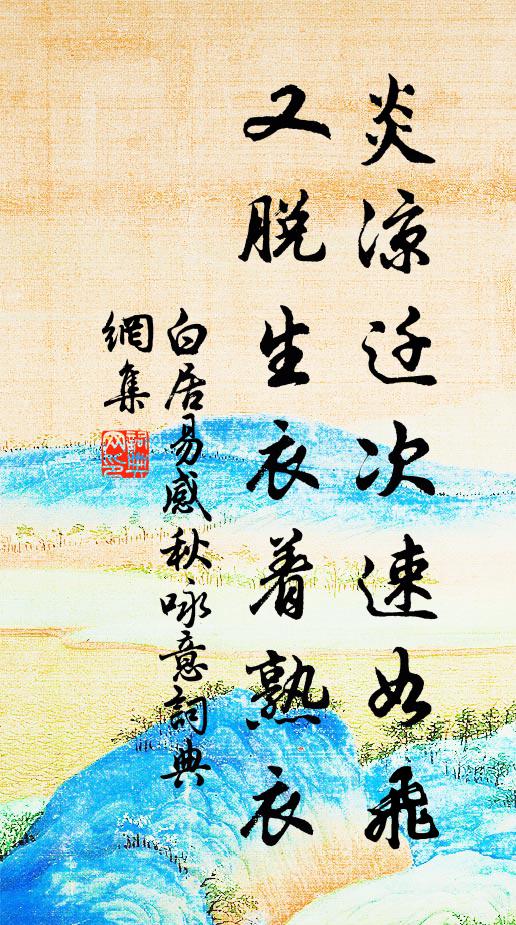 炎凉迁次速如飛
又脫生衣着熟衣
白居易感秋咏意詞典
網集